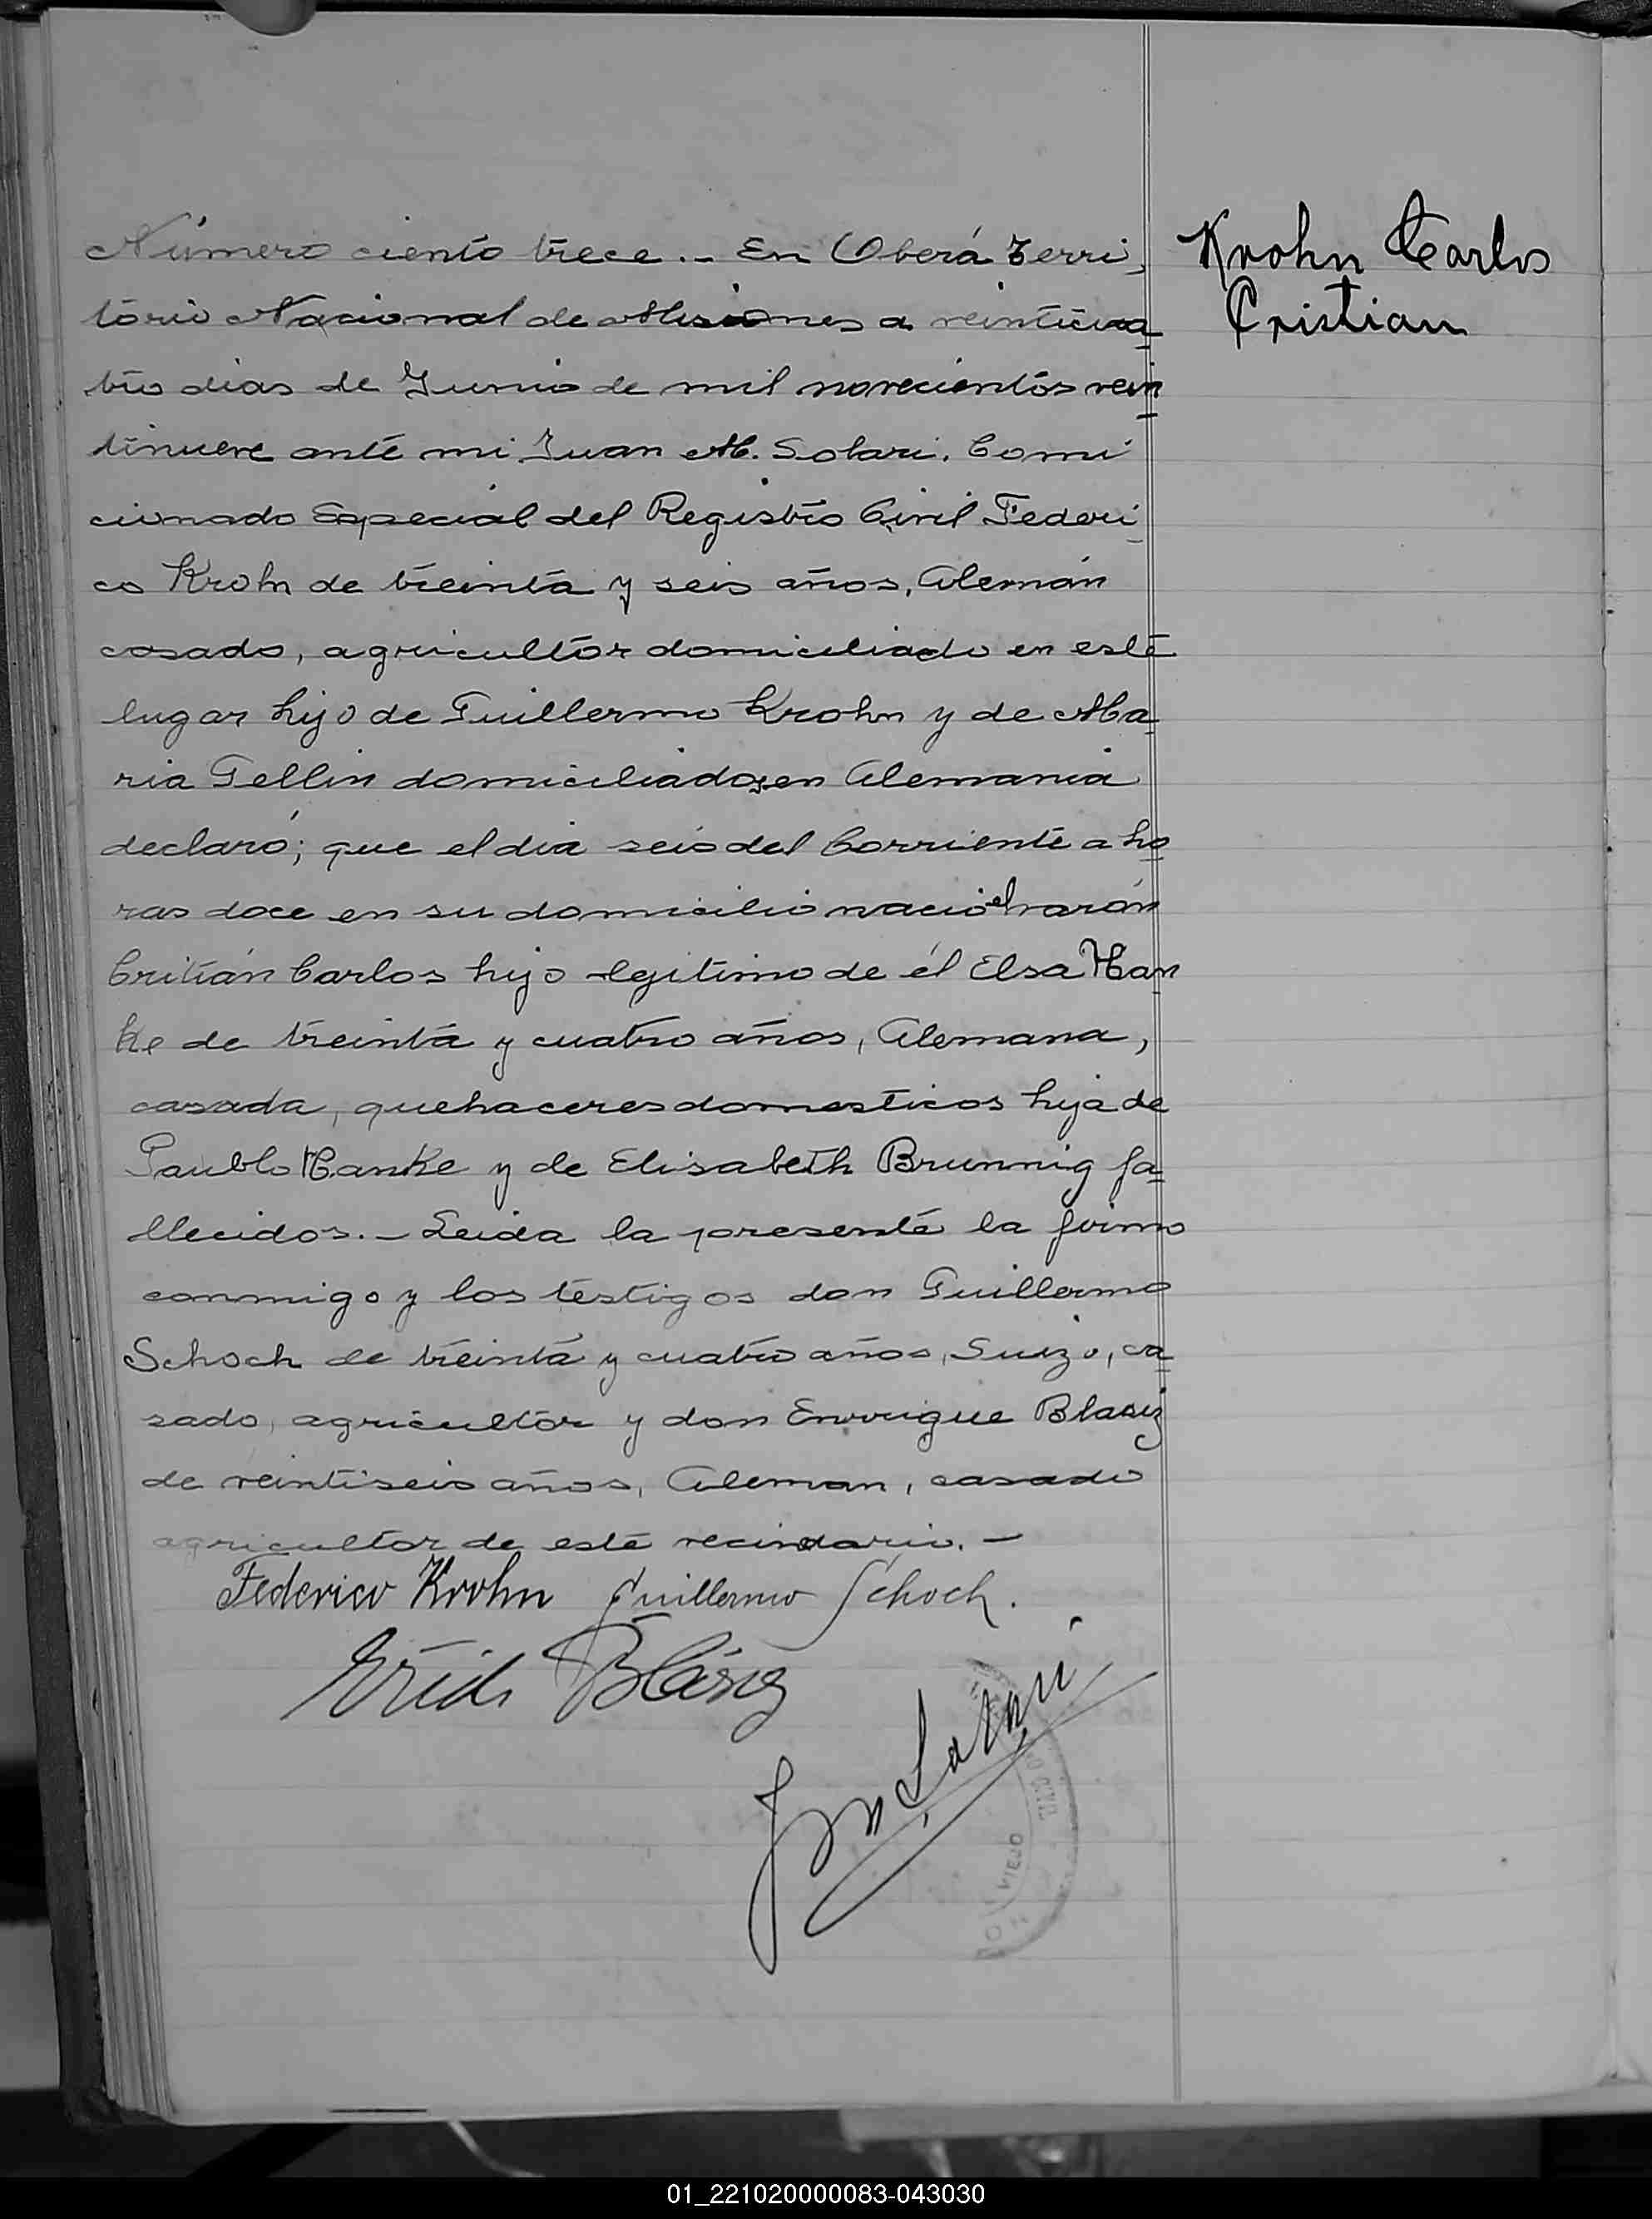 Número ciento trece.- En Oberá Terri,
torio Nacional de Misiones a veinticua
tro dias de Junio de mil novecientos vein
tinueve ante mi Juan M. Solari, Comi
cionado Especial del Registro Civil Federi
co Krohn de treinta y seis años, Alemán
casado, agricultor domiciliado en este
lugar hijo de Guillermo Krohn y de Ma
ria Tellin domiciliados en Alemania
declaró; que el dia seis del Corriente a ho
ras doce en su domicilio nació el varón
Critián Carlos hijo legitimo de él Elsa Han
ke de treinta y cuatro años, Alemana,
casada, quehaceres domesticos hija de
Paublo Hanke y de Elisabeth Brunnig fa
llecidos.- Leida la presente la firmo
conmigo y los testigos don Guillermo
Schoch de treinta y cuatro años, Suizo, ca
sado, agricultor y don Enrrique Blasig
de veintiseis años, Aleman, casado
agricultor de este vecindario.-
Krohn Carlos
Cristian
Federico Krohn Guillermo Schoch.
Erich Bläsig
Juan Solari
CIVIL
VIEJO
01_221020000083-043030